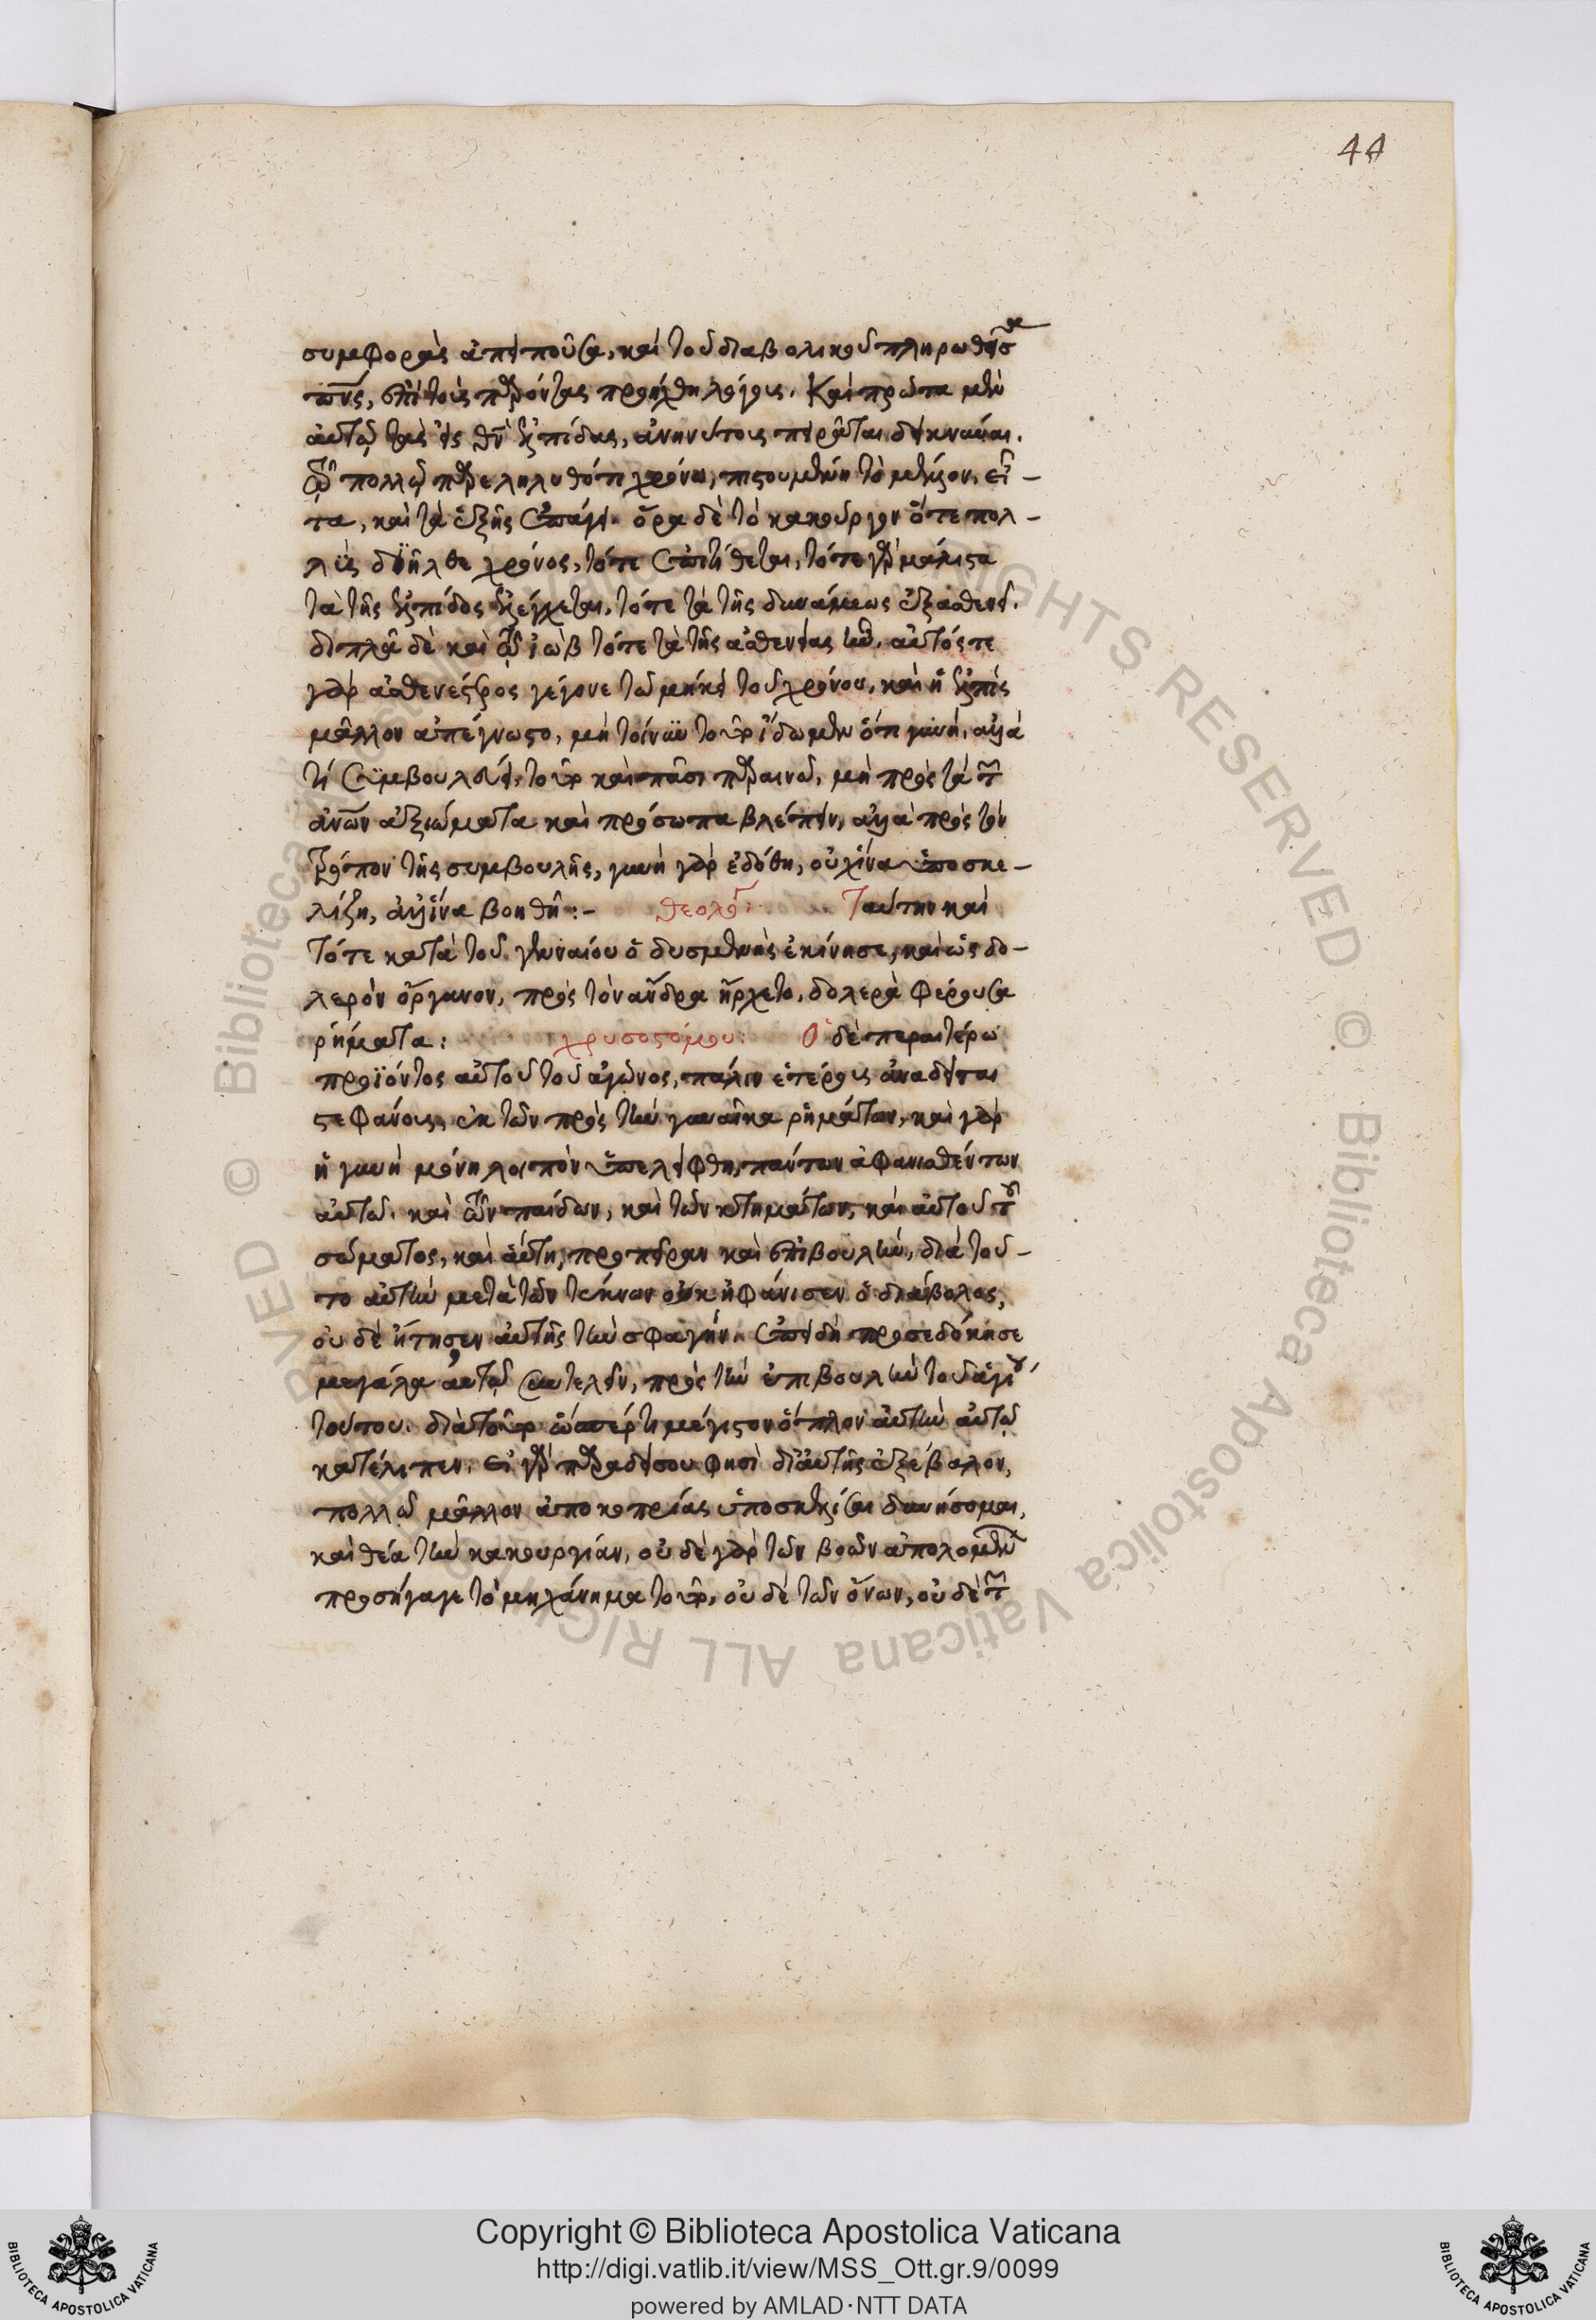 44
συμφορὰς ἀπειποῦσα, καὶ τοῦ διαβολικοῦ πληρωθεῖσα
πνς, ἐπὶ τοὺς παρόντας προήχθη λόγους. Καὶ πρῶτα μὲν
αὐτῷ τὰς εἰς θν ἐλπίδας, ἀνηνύτους πειρᾶται δεικνύναι.
τῷ πολλῷ παρεληλυθότι χρόνῳ, πιστουμένη τὸ μεῖζον. εἶ-
τα, καὶ τὰ ἑξῆς ἐπάγει. ὅρα δὲ τὸ κακοῦργον ὅτε πολ-
λὺς διῆλθε χρόνος, τότε ἐπιτίθεται, τότε γὰρ μάλιστα
τὰ τῆς ἐλπίδος ἐλέγχεται, τότε τὰ τῆς δυνάμεως ἐξασθενεῖ.
διπλᾶ δὲ καὶ τῷ ἰὼβ τότε τὰ τῆς ἀσθενείας ἦν. αὐτός τε
γὰρ ἀσθενέστερος γέγονε τῷ μήκει τοῦ χρόνου, καὶ ἡ ἐλπὶς
μᾶλλον ἀπέγνωστο, μὴ τοίνυν τοῦτο ἴδωμεν ὅτι γυνή, ἀλλὰ
τί συμβουλεύει. τοῦτο καὶ πᾶσι παραινῶ, μὴ πρὸς τὰ τῶν
ἀνων ἀξιώματα καὶ πρόσωπα βλέπειν, ἀλλὰ πρὸς τὸν
τρόπον τῆς συμβουλῆς, γυνὴ γὰρ ἐδόθη, οὐχ ἵνα ὑποσκε-
λίζῃ, ἀλλ' ἵνα βοηθῇ:- θεολό: Ταύτην καὶ
τότε κατὰ τοῦ γενναίου ὁ δυσμενὴς ἐκίνησε, καὶ ὡς δο-
λερὸν ὄργανον, πρὸς τὸν ἄνδρα ἤρχετο, δολερὰ φέρουσα
ῥήματα: χρυσοστόμου: Ὁ δὲ περαιτέρω
προϊόντος αὐτοῦ τοῦ ἀγῶνος, πάλιν ἑτέροις ἀναδεῖται
στεφάνοις, ἐκ τῶν πρὸς τὴν γυναῖκα ῥημάτων, καὶ γὰρ
ἡ γυνὴ μόνη λοιπὸν ὑπελείφθη, πάντων ἀφανισθέντων
αὐτῷ. καὶ τῶν παίδων, καὶ τῶν κτημάτων, καὶ αὐτοῦ τοῦ
σώματος, καὶ αὕτη, προπεῖραν καὶ ἐπιβουλὴν, διὰ τοῦ-
το αὐτὴν μετὰ τῶν τέκνων οὐκ ἠφάνισεν ὁ διάβολος,
οὐδὲ ᾔτησεν αὐτῆς τὴν σφαγήν. ἐπειδὴ προσεδόκησε
μεγάλα αὐτῷ συντελεῖν, πρὸς τὴν ἐπιβουλὴν τοῦ ἁγίου
τούτου. διὰ τοῦτο ὥσπέρ τι μέγιστον ὅπλον αὐτὴν αὐτῷ
κατέλιπεν. εἰ γὰρ παραδείσου φησὶ δι' αὐτῆς ἐξέβαλον,
πολλῷ μᾶλλον ἀπὸ κοπρίας ὑποσκελίσαι δυνήσομαι,
καὶ θέα τὴν κακουργίαν, οὐδὲ γὰρ τῶν βοῶν ἀπολομένων
προσήγαγε τὸ μηχάνημα τοῦτο, οὐδὲ τῶν ὄνων, οὐδὲ τῶν
Copyright © Biblioteca Apostolica Vaticana
http://digi.vatlib.it/view/MSS_Ott.gr.9/0099
powered by AMLAD·NTT DATA